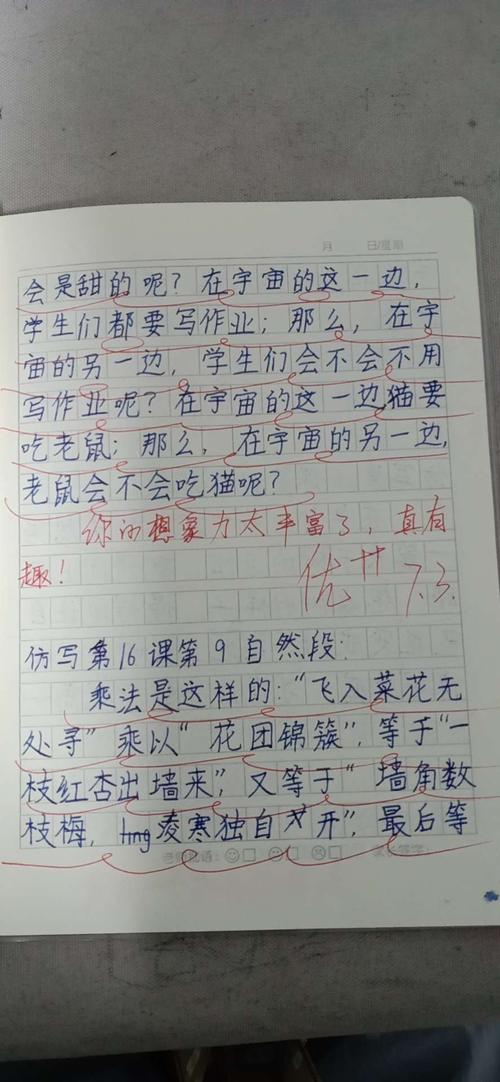 月 日/星期
会是甜的呢？在宇宙的这一边，
学生们都要写作业；那么，在宇
宙的另一边，学生们会不会不用
写作业呢？在宇宙的这一边，猫要
吃老鼠；那么，在宇宙的另一边，
老鼠会不会吃猫呢？
你的想象力太丰富了，真有
趣！
优++ 7.3.
仿写第16课第9自然段：
乘法是这样的：“飞入菜花无
处寻”乘以“花团锦簇”，等于“一
枝红杏出墙来”，又等于“墙角数
枝梅，凌寒独自开”，最后等
老师评语：
家长签字：